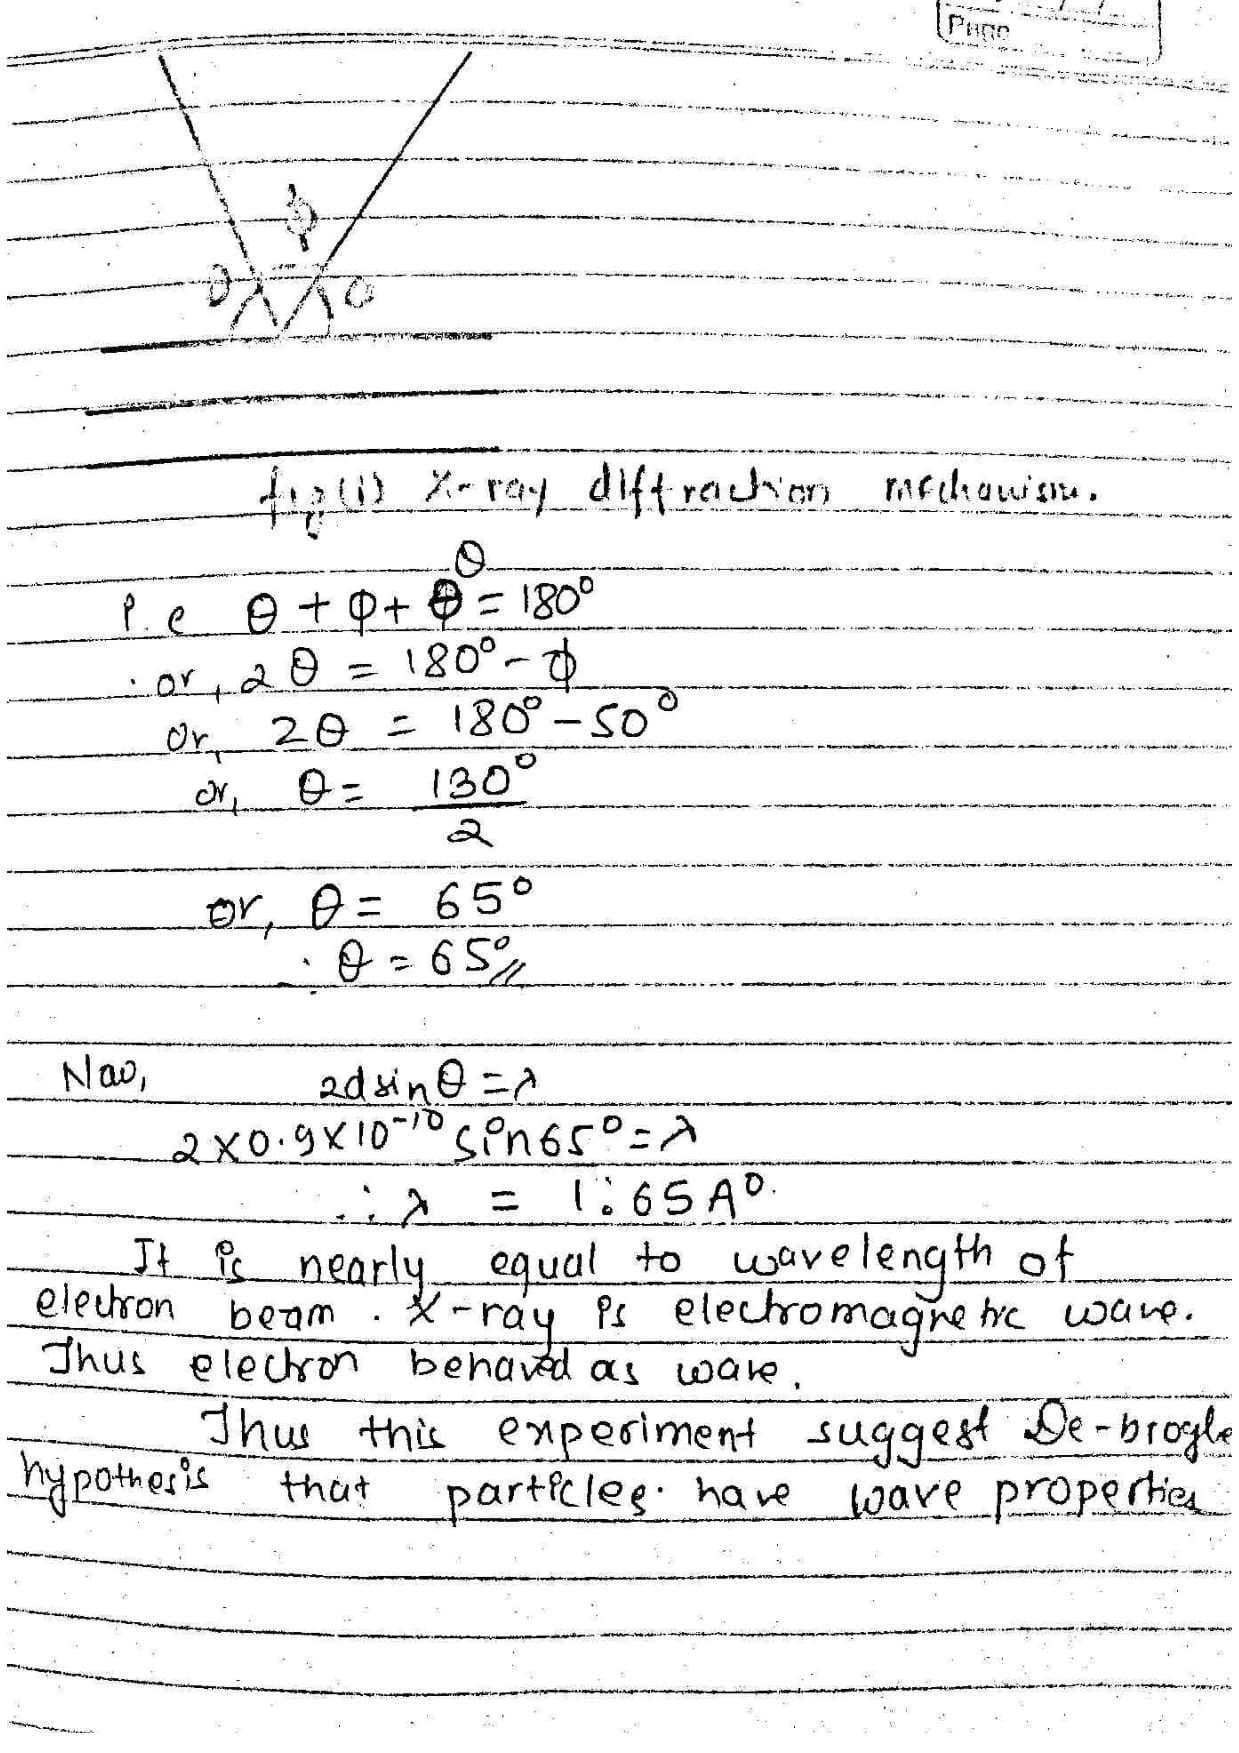 Page
φ
θ θ
fig(i) X-ray diffraction mechanism.
θ
i.e θ + φ + θ = 180°
or, 2θ = 180° - φ
or, 2θ = 180° - 50°
or, θ = 130°
2
or, θ = 65°
∴ θ = 65°//
Now, 2d sinθ = λ
2×0.9×10⁻¹⁰ sin65° = λ
∴ λ = 1.65 A°.
It is nearly equal to wavelength of
electron beam. X-ray is electromagnetic wave.
Thus electron behaved as wave.
Thus this experiment suggest De-brogle
hypothesis that particles have wave properties